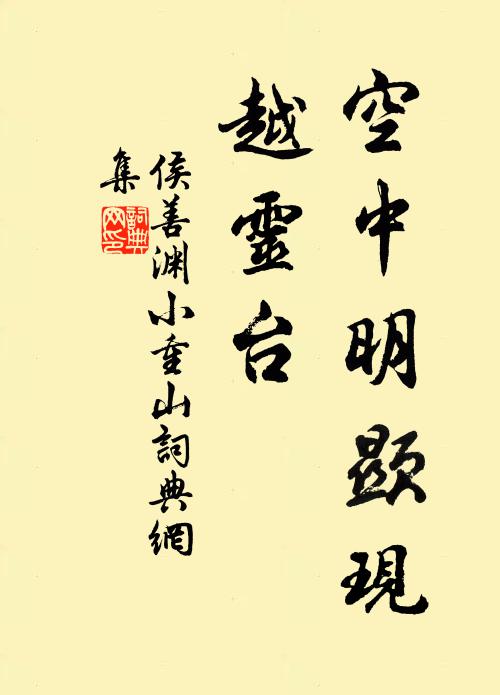 空中明顯現
越靈台
侯善渊小重山詞典網
集
詞典
网印